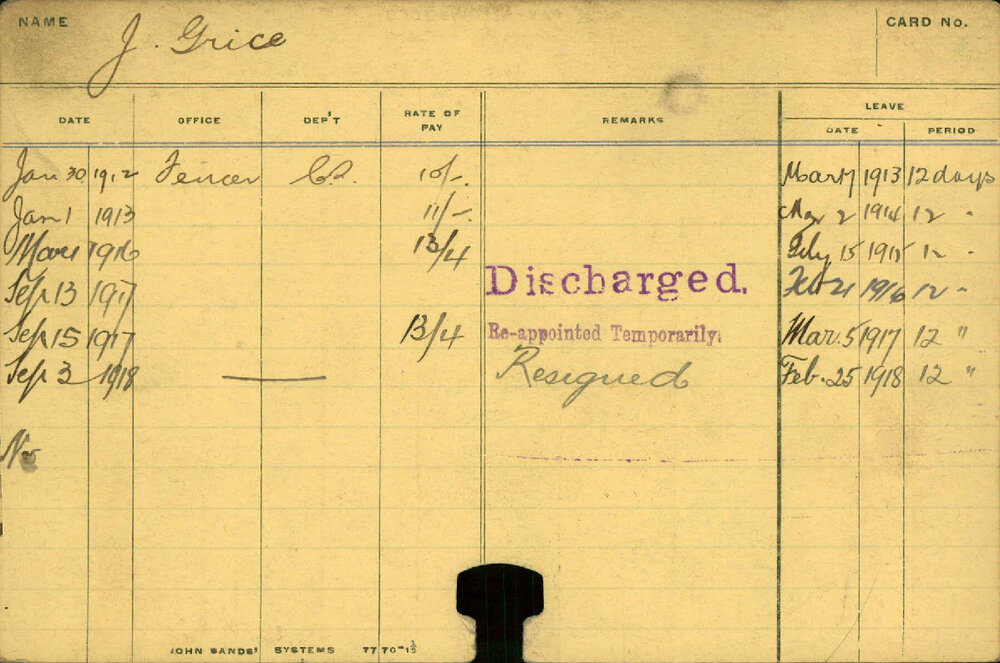 NAME J. Grice CARD No.
DATE OFFICE DEP'T RATE OF PAY REMARKS LEAVE DATE PERIOD
Jan 30 1912 Fencer 10/-. Mar 17 1913 12 days
Jan 1 1913 11/-. May 2 1914 12 "
Mar 1 1916 13/4 July 15 1915 12 "
Sep 13 1917 Discharged. Feb 21 1916 12 "
Sep 15 1917 13/4 Re-appointed Temporarily. Mar. 5 1917 12 "
Sep 3 1918 Resigned Feb. 25 1918 12 "
JOHN SANDS' SYSTEMS